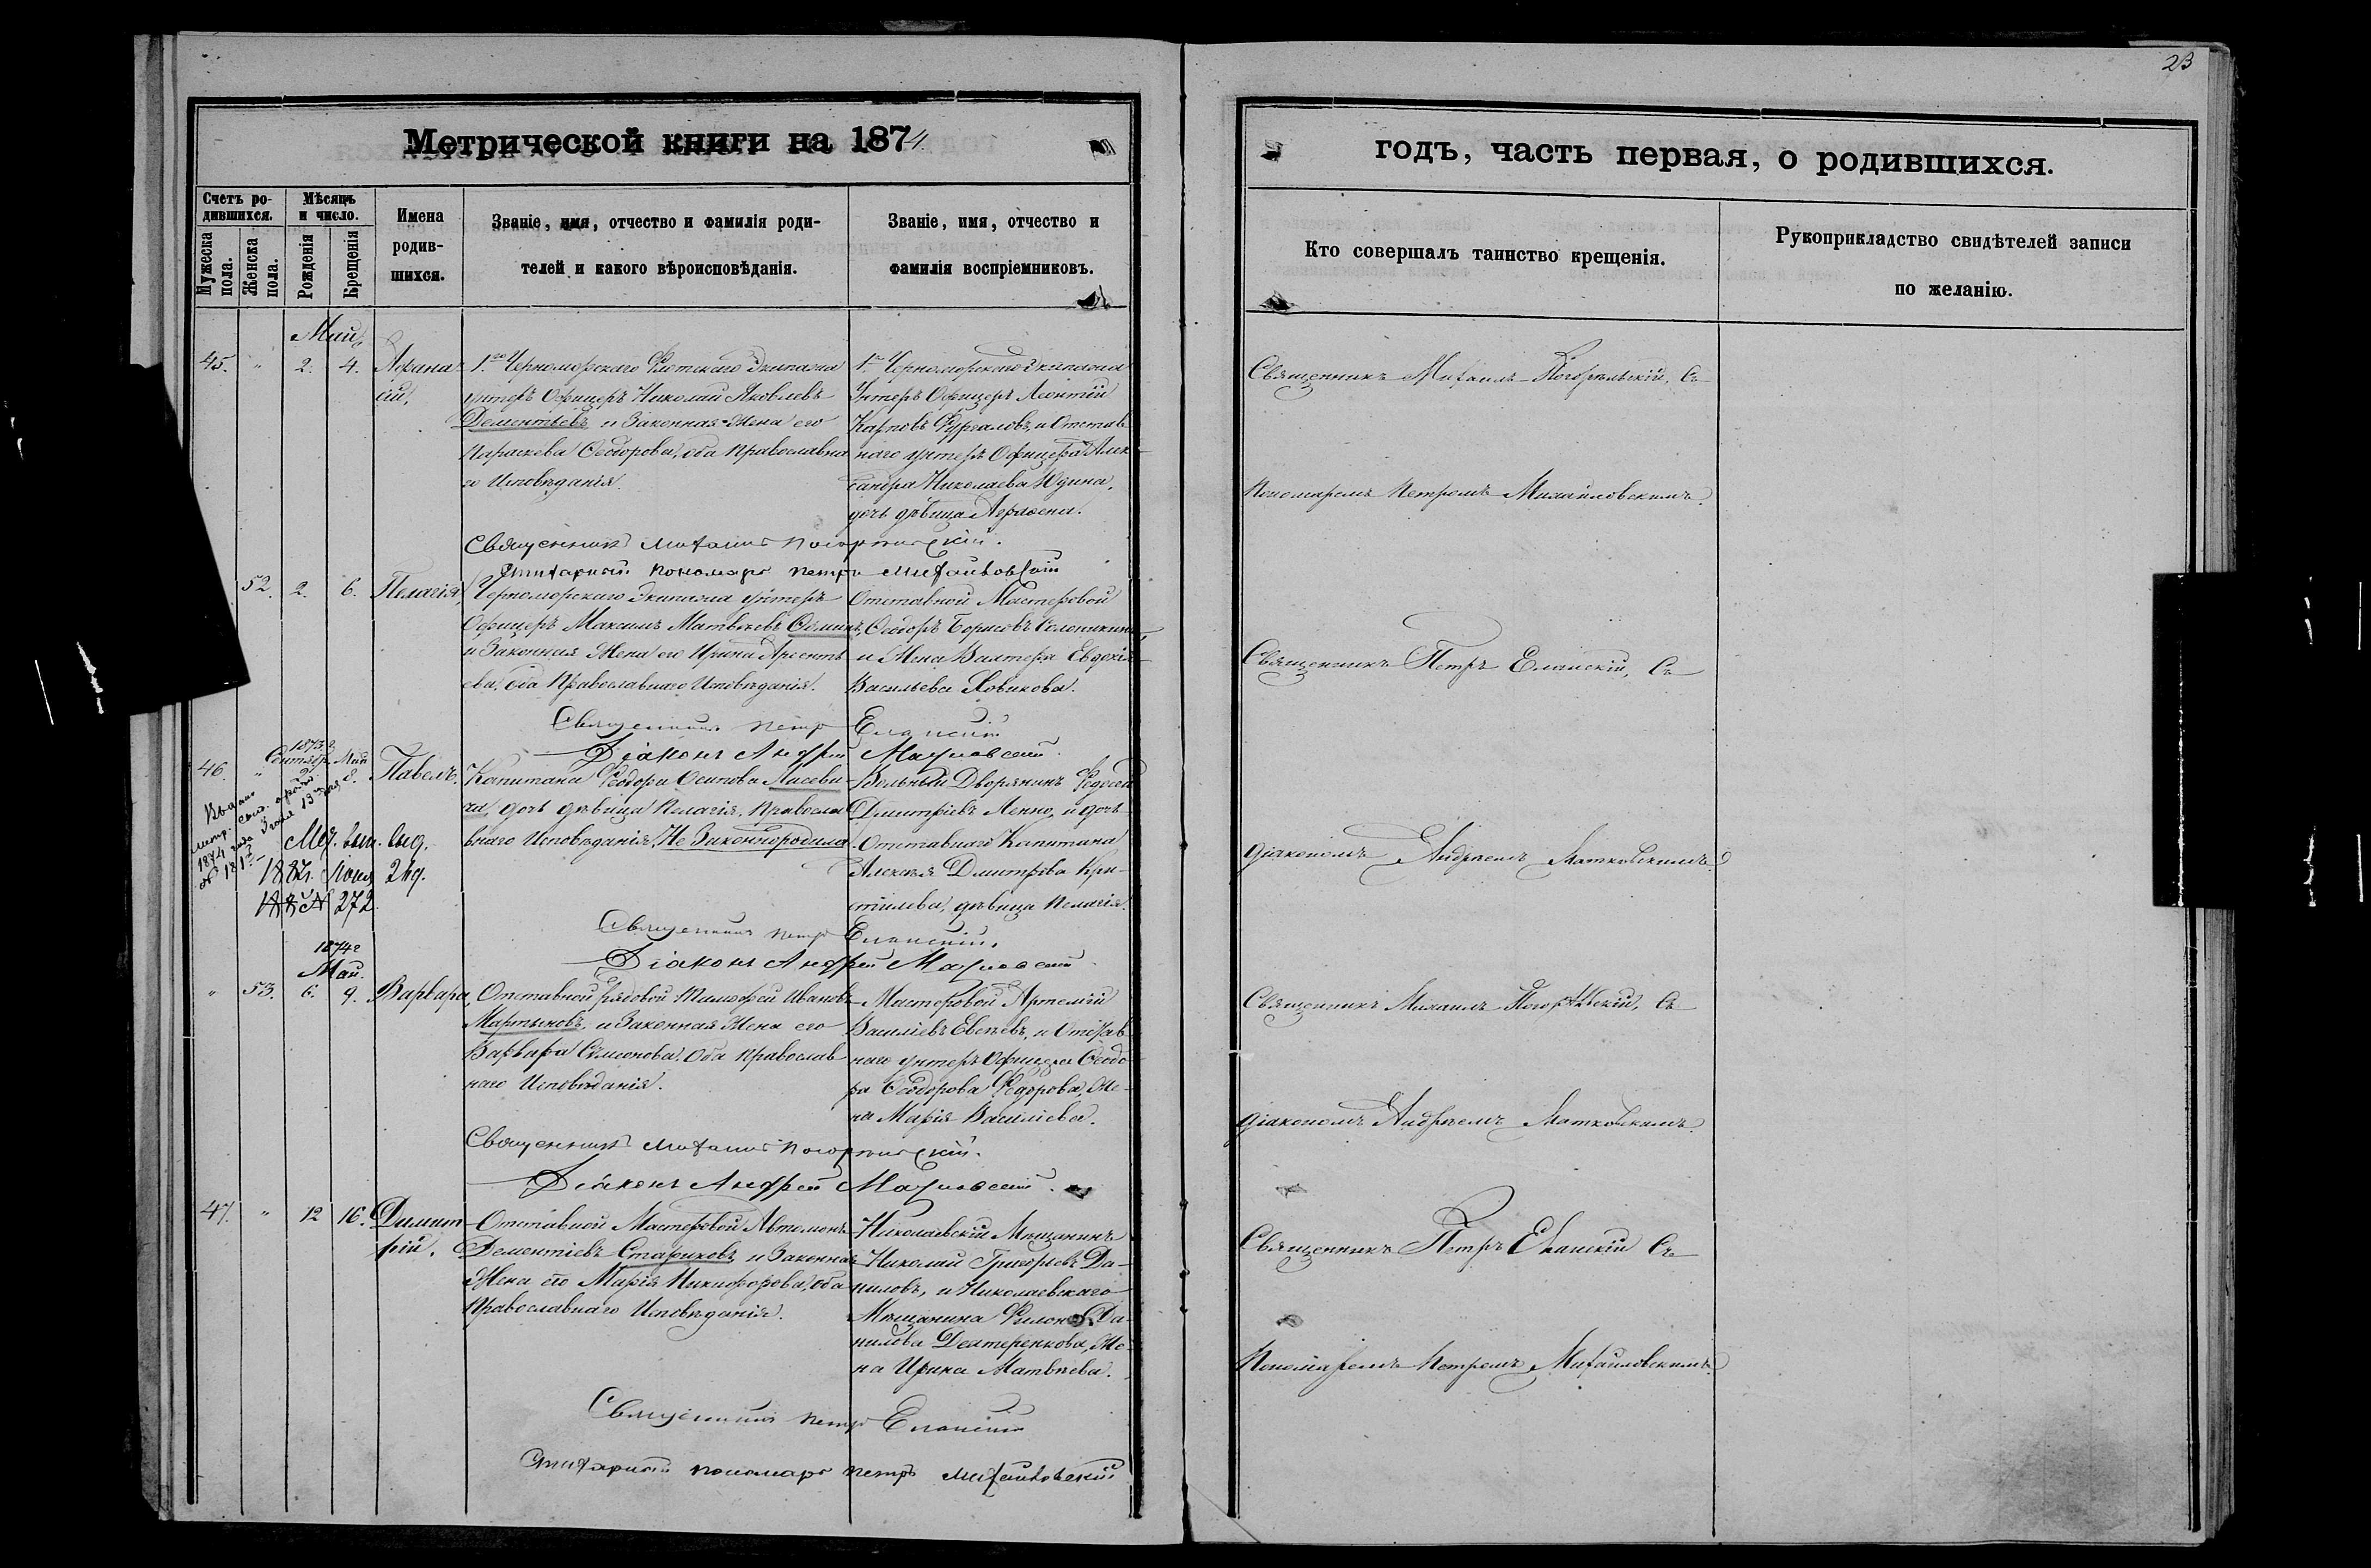 23
Метрической книги на 1874
годъ, часть первая, о родившихся.
Счетъ ро-
дившихся.
Мужеска
пола.
Женска
пола.
Мѣсяцъ
и число.
Рожденія
Крещенія
Имена
родив-
шихся.
Званіе, имя, отчество и фамилія роди-
телей и какого вѣроисповѣданія.
Званіе, имя, отчество и
фамилія воспріемниковъ.
Кто совершалъ таинство крещенія.
Рукоприкладство свидѣтелей записи
по желанію.
Май
45. " 2. 4. Афана
сій,
1го Черноморскаго Флотскаго Экипажа
унтеръ Офицеръ Николай Яковлевъ
Дементьевъ и Законная Жена его
Параскева Ѳеодорова, оба Православна
го Исповѣданія.
1го Черноморскаго Экипажа
Унтеръ Офицеръ Леонтій
Карповъ и Отстав
наго унтеръ Офицера Алек
сандра Николаева Юдина,
дочь дѣвица
Священникъ Михаилъ Погорѣльскій, Съ
Пономаремъ Петромъ Михайловскимъ.
Священникъ Михаилъ Погорѣльскій.
Штатный Пономарь Петръ Михайловскій
52. 2. 6. Пелагія,
Черноморскаго Экипажа унтеръ
Офицеръ Максимъ Матвѣевъ
и Законная Жена его Ирина Арсенть
ева, оба Православнаго Исповѣданія.
Отставной Мастеровой
Ѳеодоръ Борисовъ
и Жена Вахтера Евдокія
Васильева Новикова.
Священникъ Петръ Еланскій, Съ
Діакономъ Андреемъ Матковскимъ
Священникъ Петръ Еланскій
Діаконъ Андрей Матковскій
1873г
Сентябр. Май
46. " 2. 8. Павелъ.
Капитана Ѳеодора Осипова Лисеви
ча дочь дѣвица Пелагія, Правосла
внаго Исповѣданія, Не Законнородила
Вольный Дворянинъ
Дмитріевъ Ленно, и дочь
Отставнаго Капитана
Алексѣя Дмитрева Кри-
стилева, дѣвица Пелагія.
Выдано
метр. свид.
1874 года Іюля 13 дня
№ 181
Мет. вып. выд.
1887г. Іюня 24д.
№ 272.
Священникъ Петръ Еланскій.
Діаконъ Андрей Матковскій
1874г
Май.
" 53. 6. 9. Варвара,
Отставной рядовой Тимофей Ивановъ
Мартыновъ и Законная Жена его
Варвара Симонова, Оба Православ
наго Исповѣданія.
Мастеровой Артемій
Василіевъ Евсѣевъ, и Отстав
наго унтеръ Офицера Ѳеодо
ра Ѳеодорова Федорова, Же
на Марія Василіева.
Священникъ Михаилъ Погорѣльскій, Съ
Діакономъ Андреемъ Матковскимъ
Священникъ Михаилъ Погорѣльскій.
Діаконъ Андрей Матковскій.
47. " 12 16. Димит
рій.
Отставной Мастеровой Автомонъ
Дементіевъ Стариковъ и Законная
Жена его Марія Никифорова, оба
Православнаго Исповѣданія.
Николаевскій Мѣщанинъ
Николай Григорьевъ Да-
ниловъ, и Николаевскаго
Мѣщанина Филона Да
нилова Дехтеренкова, Же
на Ирина Матвѣева.
Священникъ Петръ Еланскій Съ
Пономаремъ Петромъ Михайловскимъ
Священникъ Петръ Еланскій
Штатный пономарь Петръ Михайловскій